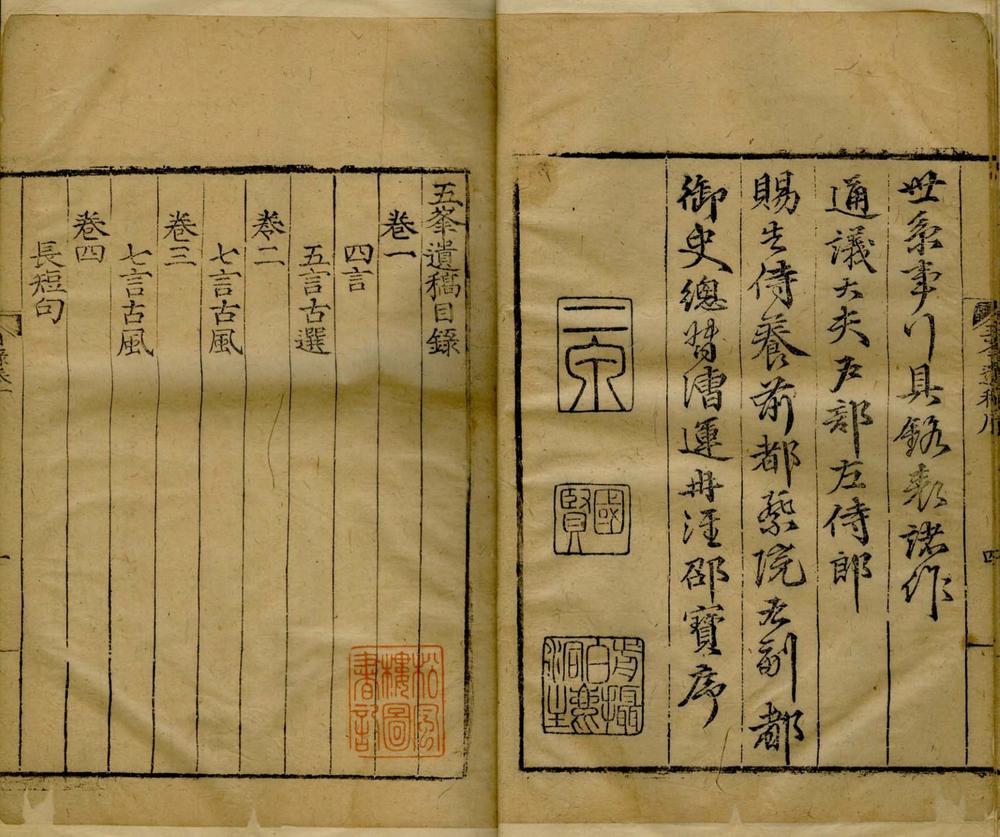 世系事行具銘表諸作
通議大夫戶部左侍郎
賜告侍養前都察院右副都
御史總督漕運毋湩邵寶序
二泉
國賢
五峯遺稿目錄
卷一
四言
五言古選
卷二
七言古風
卷三
七言古風
卷四
長短句
松風樓圖書記